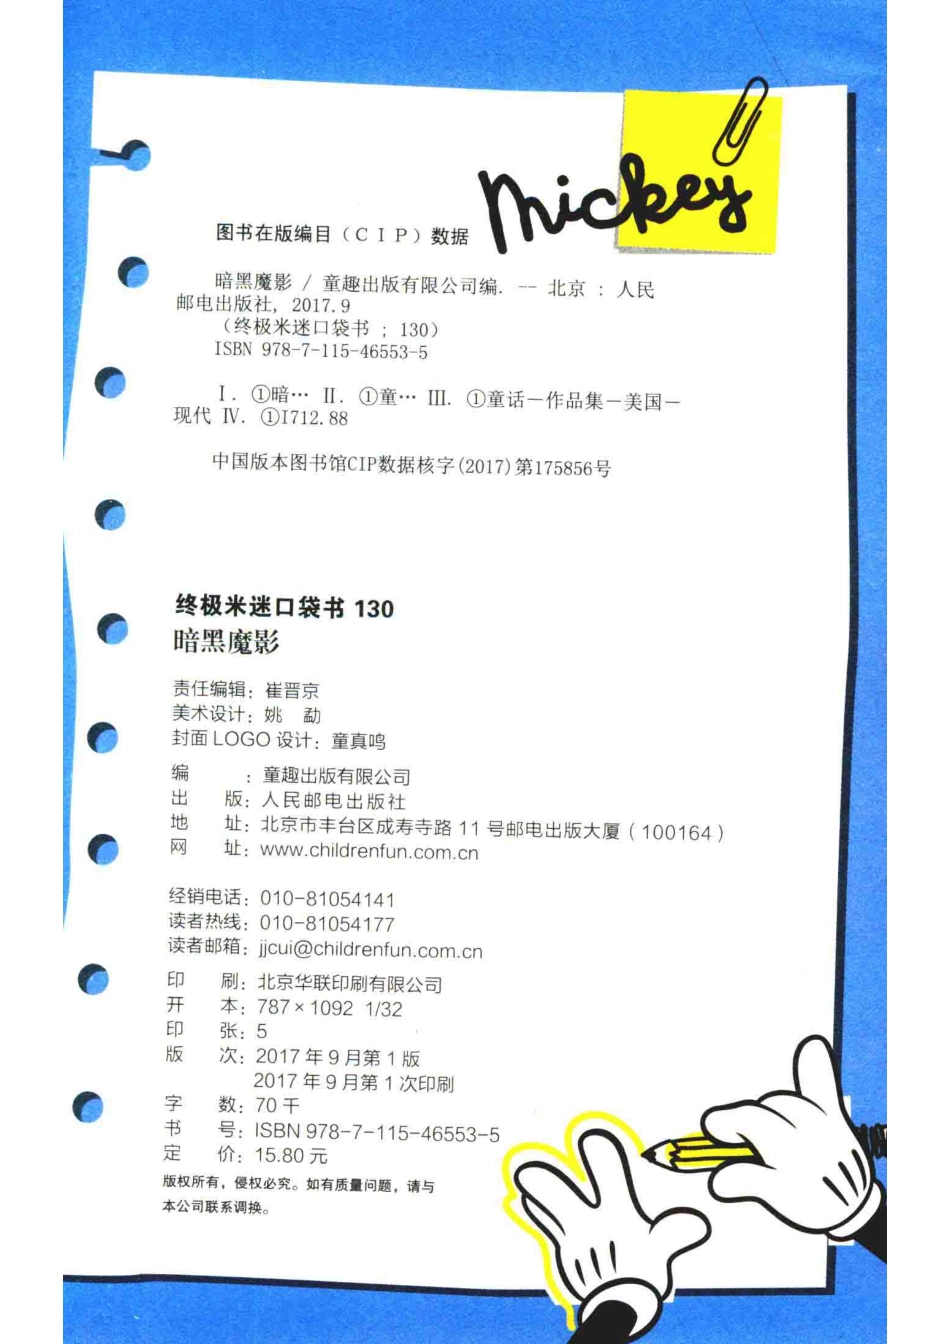 Mickey
图书在版编目（CIP）数据
暗黑魔影 / 童趣出版有限公司编. -- 北京 : 人民
邮电出版社, 2017.9
（终极米迷口袋书 ; 130）
ISBN 978-7-115-46553-5
Ⅰ. ①暗… Ⅱ. ①童… Ⅲ. ①童话－作品集－美国－
现代 Ⅳ. ①I712.88
中国版本图书馆CIP数据核字(2017)第175856号
终极米迷口袋书 130
暗黑魔影
责任编辑：崔晋京
美术设计：姚 勐
封面 LOGO 设计：童真鸣
编 ：童趣出版有限公司
出 版：人民邮电出版社
地 址：北京市丰台区成寿寺路 11 号邮电出版大厦（100164）
网 址：www.childrenfun.com.cn
经销电话：010-81054141
读者热线：010-81054177
读者邮箱：jjcui@childrenfun.com.cn
印 刷：北京华联印刷有限公司
开 本：787×1092 1/32
印 张：5
版 次：2017 年 9 月第 1 版
2017 年 9 月第 1 次印刷
字 数：70 千
书 号：ISBN 978-7-115-46553-5
定 价：15.80 元
版权所有，侵权必究。如有质量问题，请与
本公司联系调换。